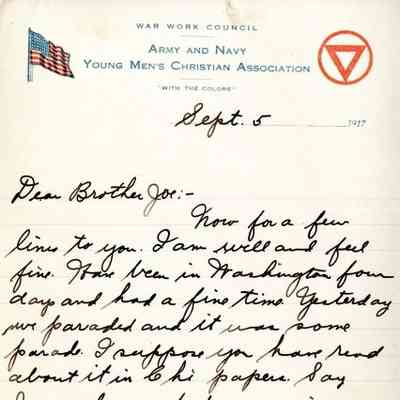 WAR WORK COUNCIL
ARMY AND NAVY
YOUNG MEN'S CHRISTIAN ASSOCIATION
"WITH THE COLORS"
Sept. 5 1917
Dear Brother Joe:-
Now for a few
lines to you. I am well and feel
fine. Have been in Washington four
days and had a fine time. Yesterday
we paraded and it was some
parade. I suppose you have read
about it in Chi papers. Say